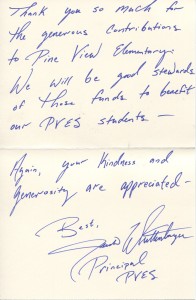 Thank you so much for
the generous contributions
to Pine View Elementary.
We will be good stewards
of those funds to benefit
our PVES students —
Again, your kindness and
generosity are appreciated —
Best,
Principal
PVES